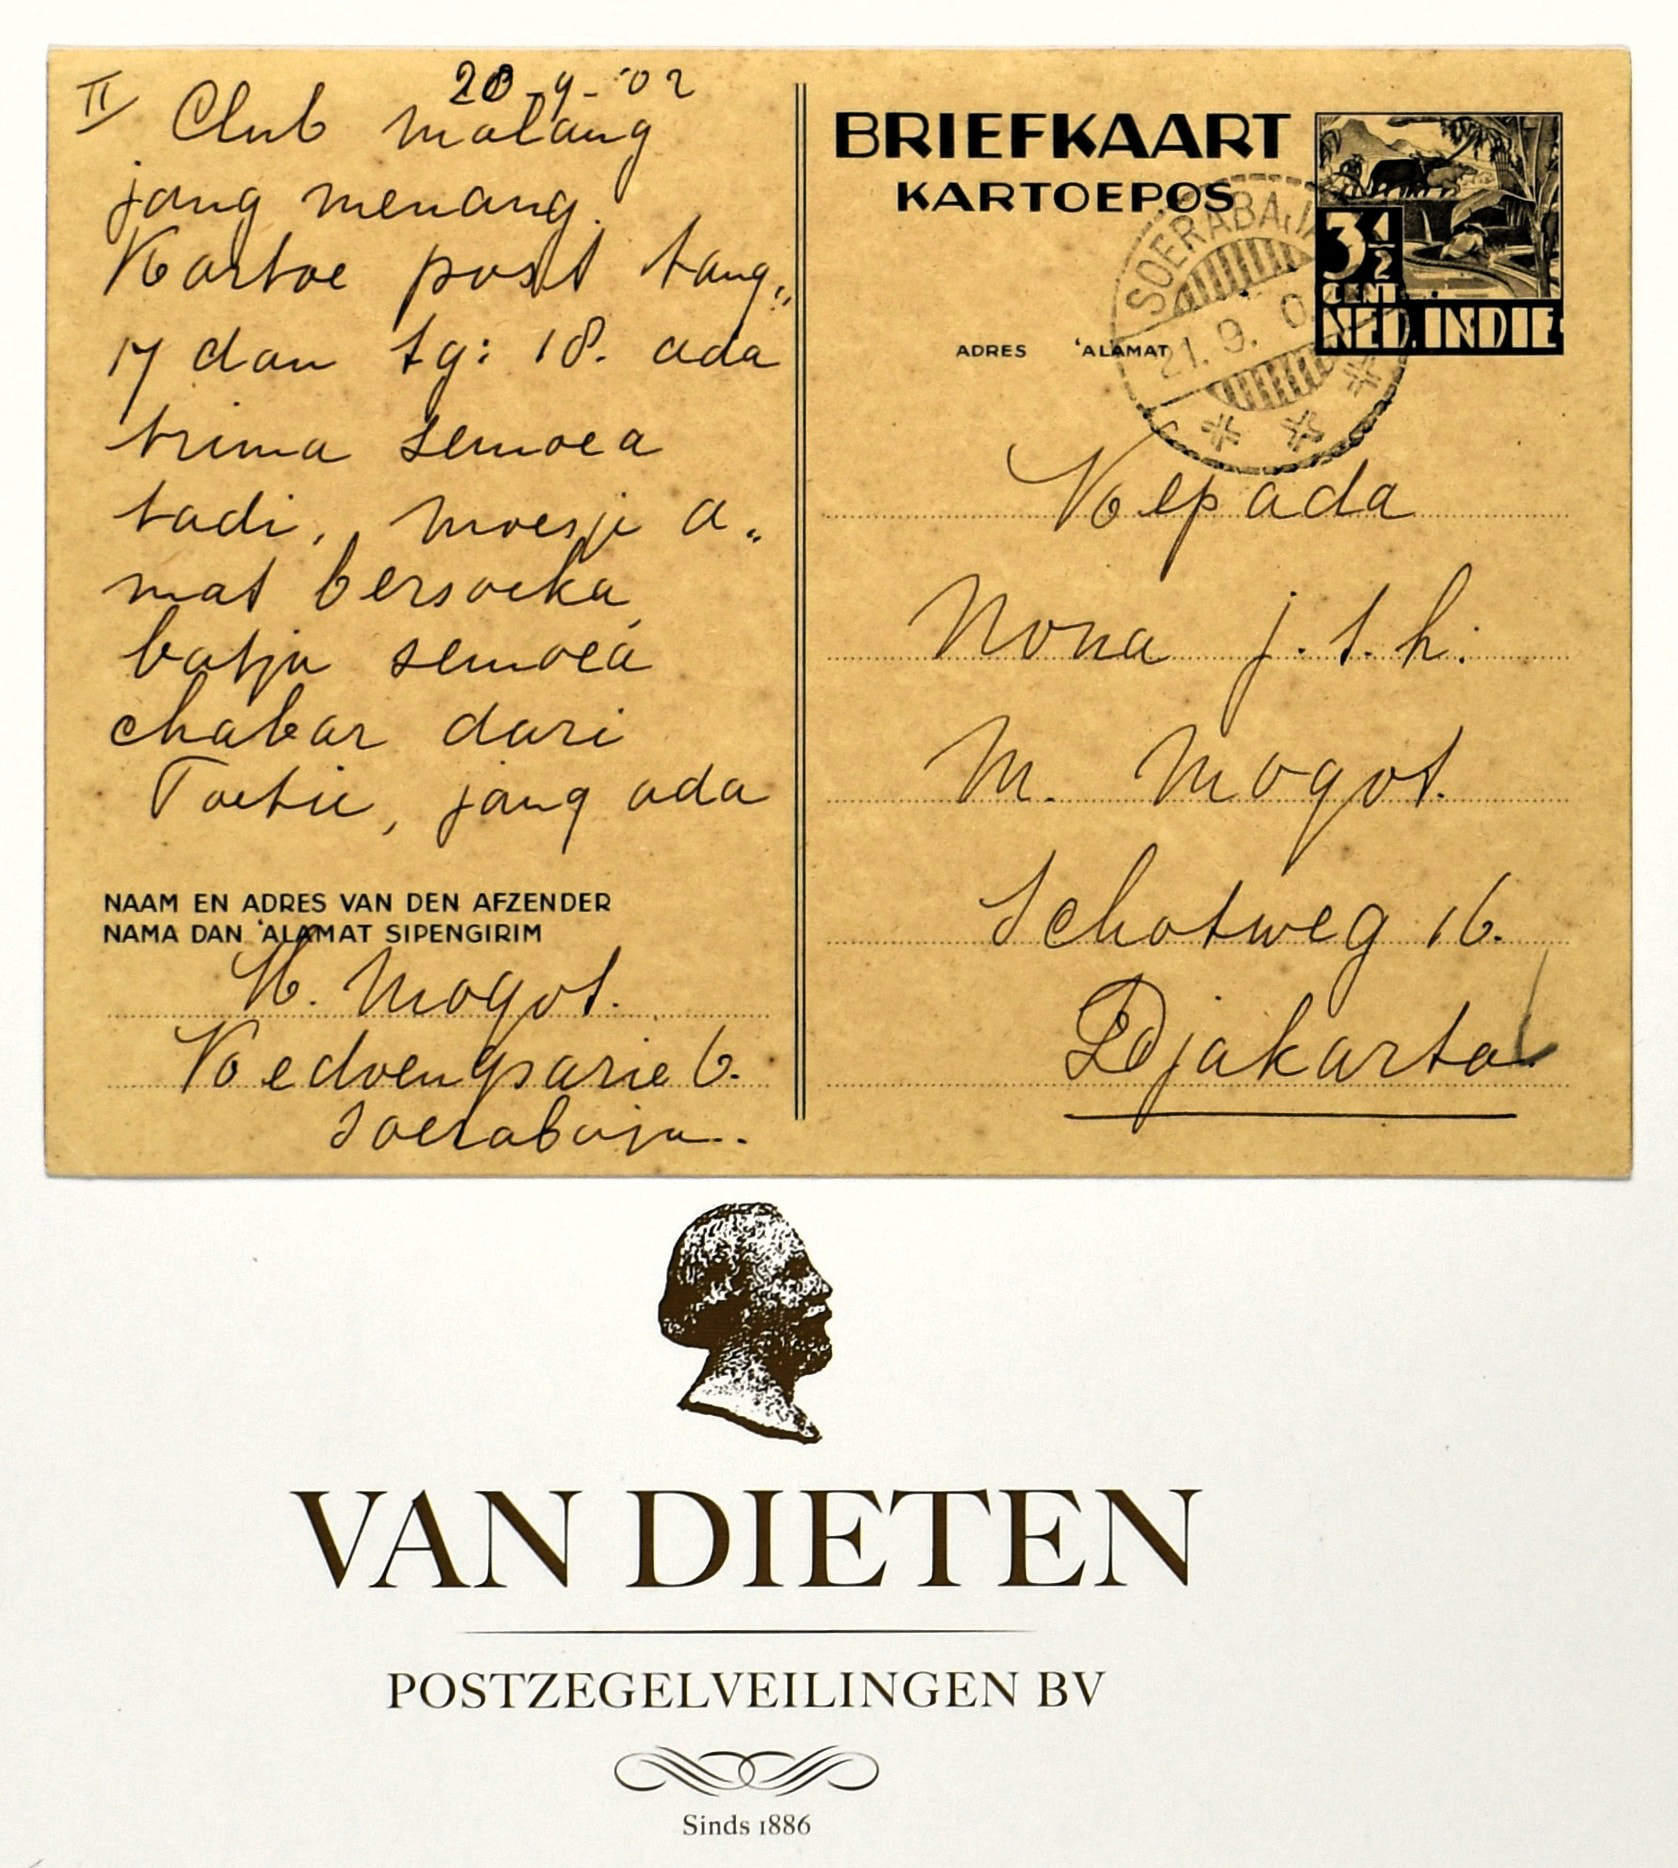 II 20-9-'02
Club Malang
jang menang.
Kartoe post tang"
17 dan tg: 18. ada
trima semoea
tadi, Moesje a"
mat bersoeka
batja semoea
chabar dari
Toetie, jang ada
NAAM EN ADRES VAN DEN AFZENDER
NAMA DAN 'ALAMAT SIPENGIRIM
H. Mogot.
Kedoengsarie 6.
Soerabaja..
BRIEFKAART
KARTOEPOS
3½
CENT
NED. INDIE
SOERABAJA
21.9.0
ADRES 'ALAMAT
Kepada
Nona j.t.h.
M. Mogot.
Schotweg 16.
Djakarta
VAN DIETEN
POSTZEGELVEILINGEN BV
Sinds 1886